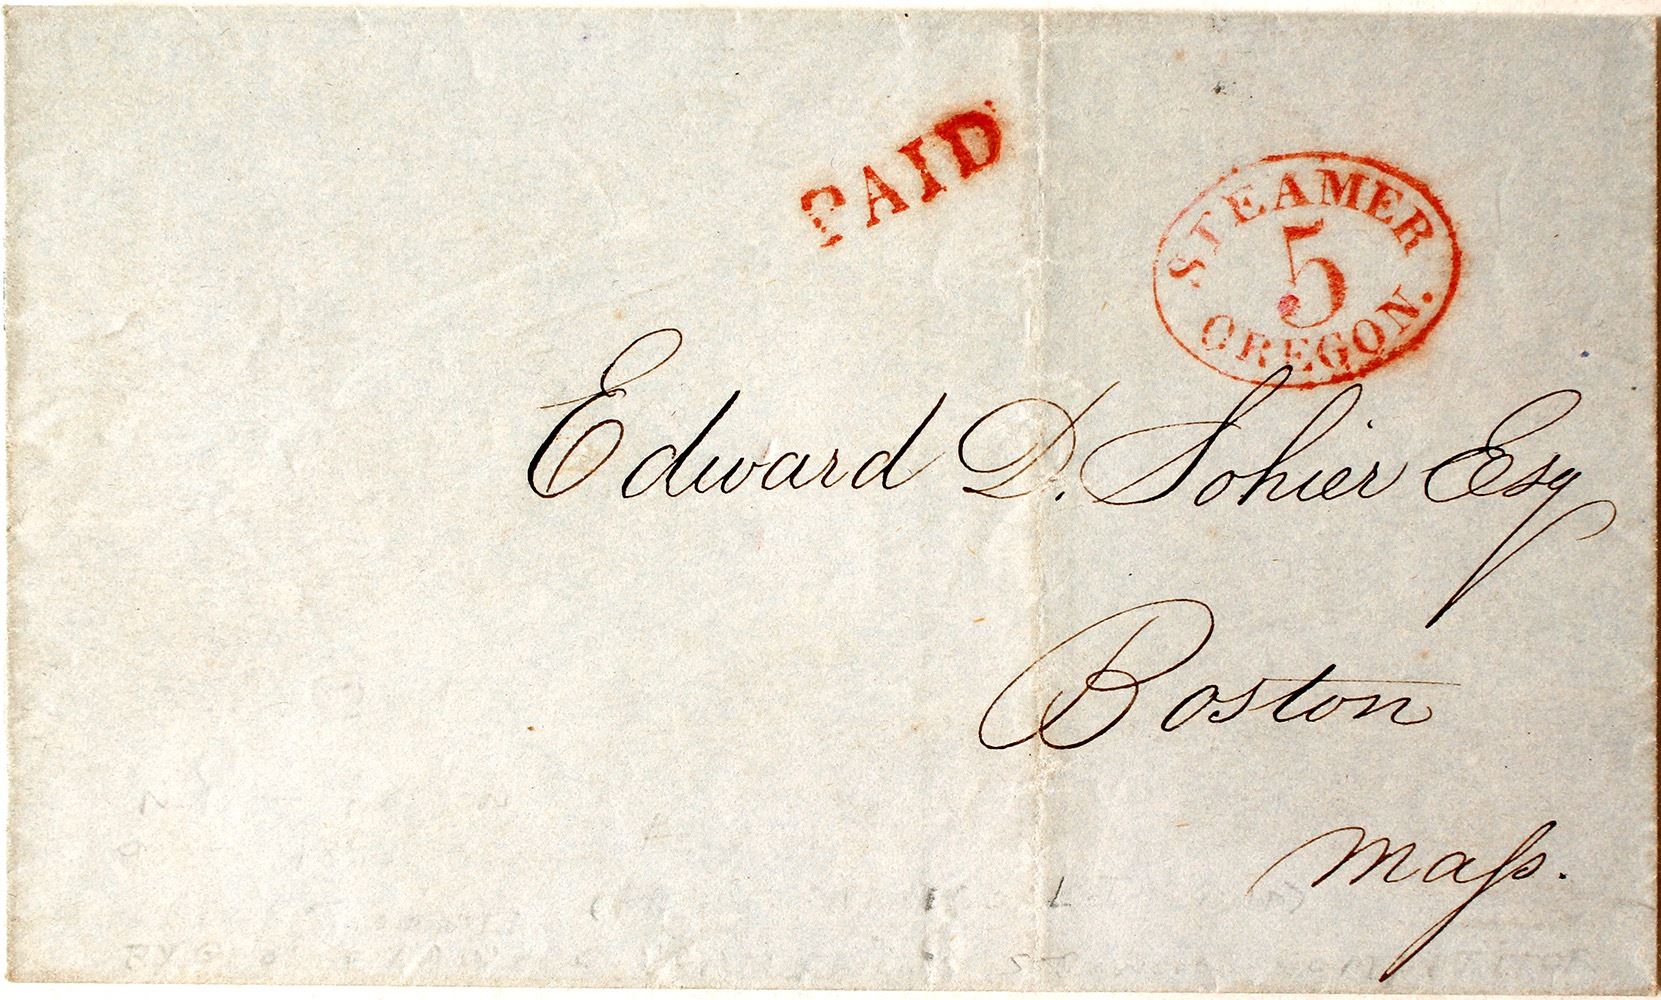 PAID
STEAMER
5
OREGON.
Edward D. Sohier Esq
Boston
Maſs.